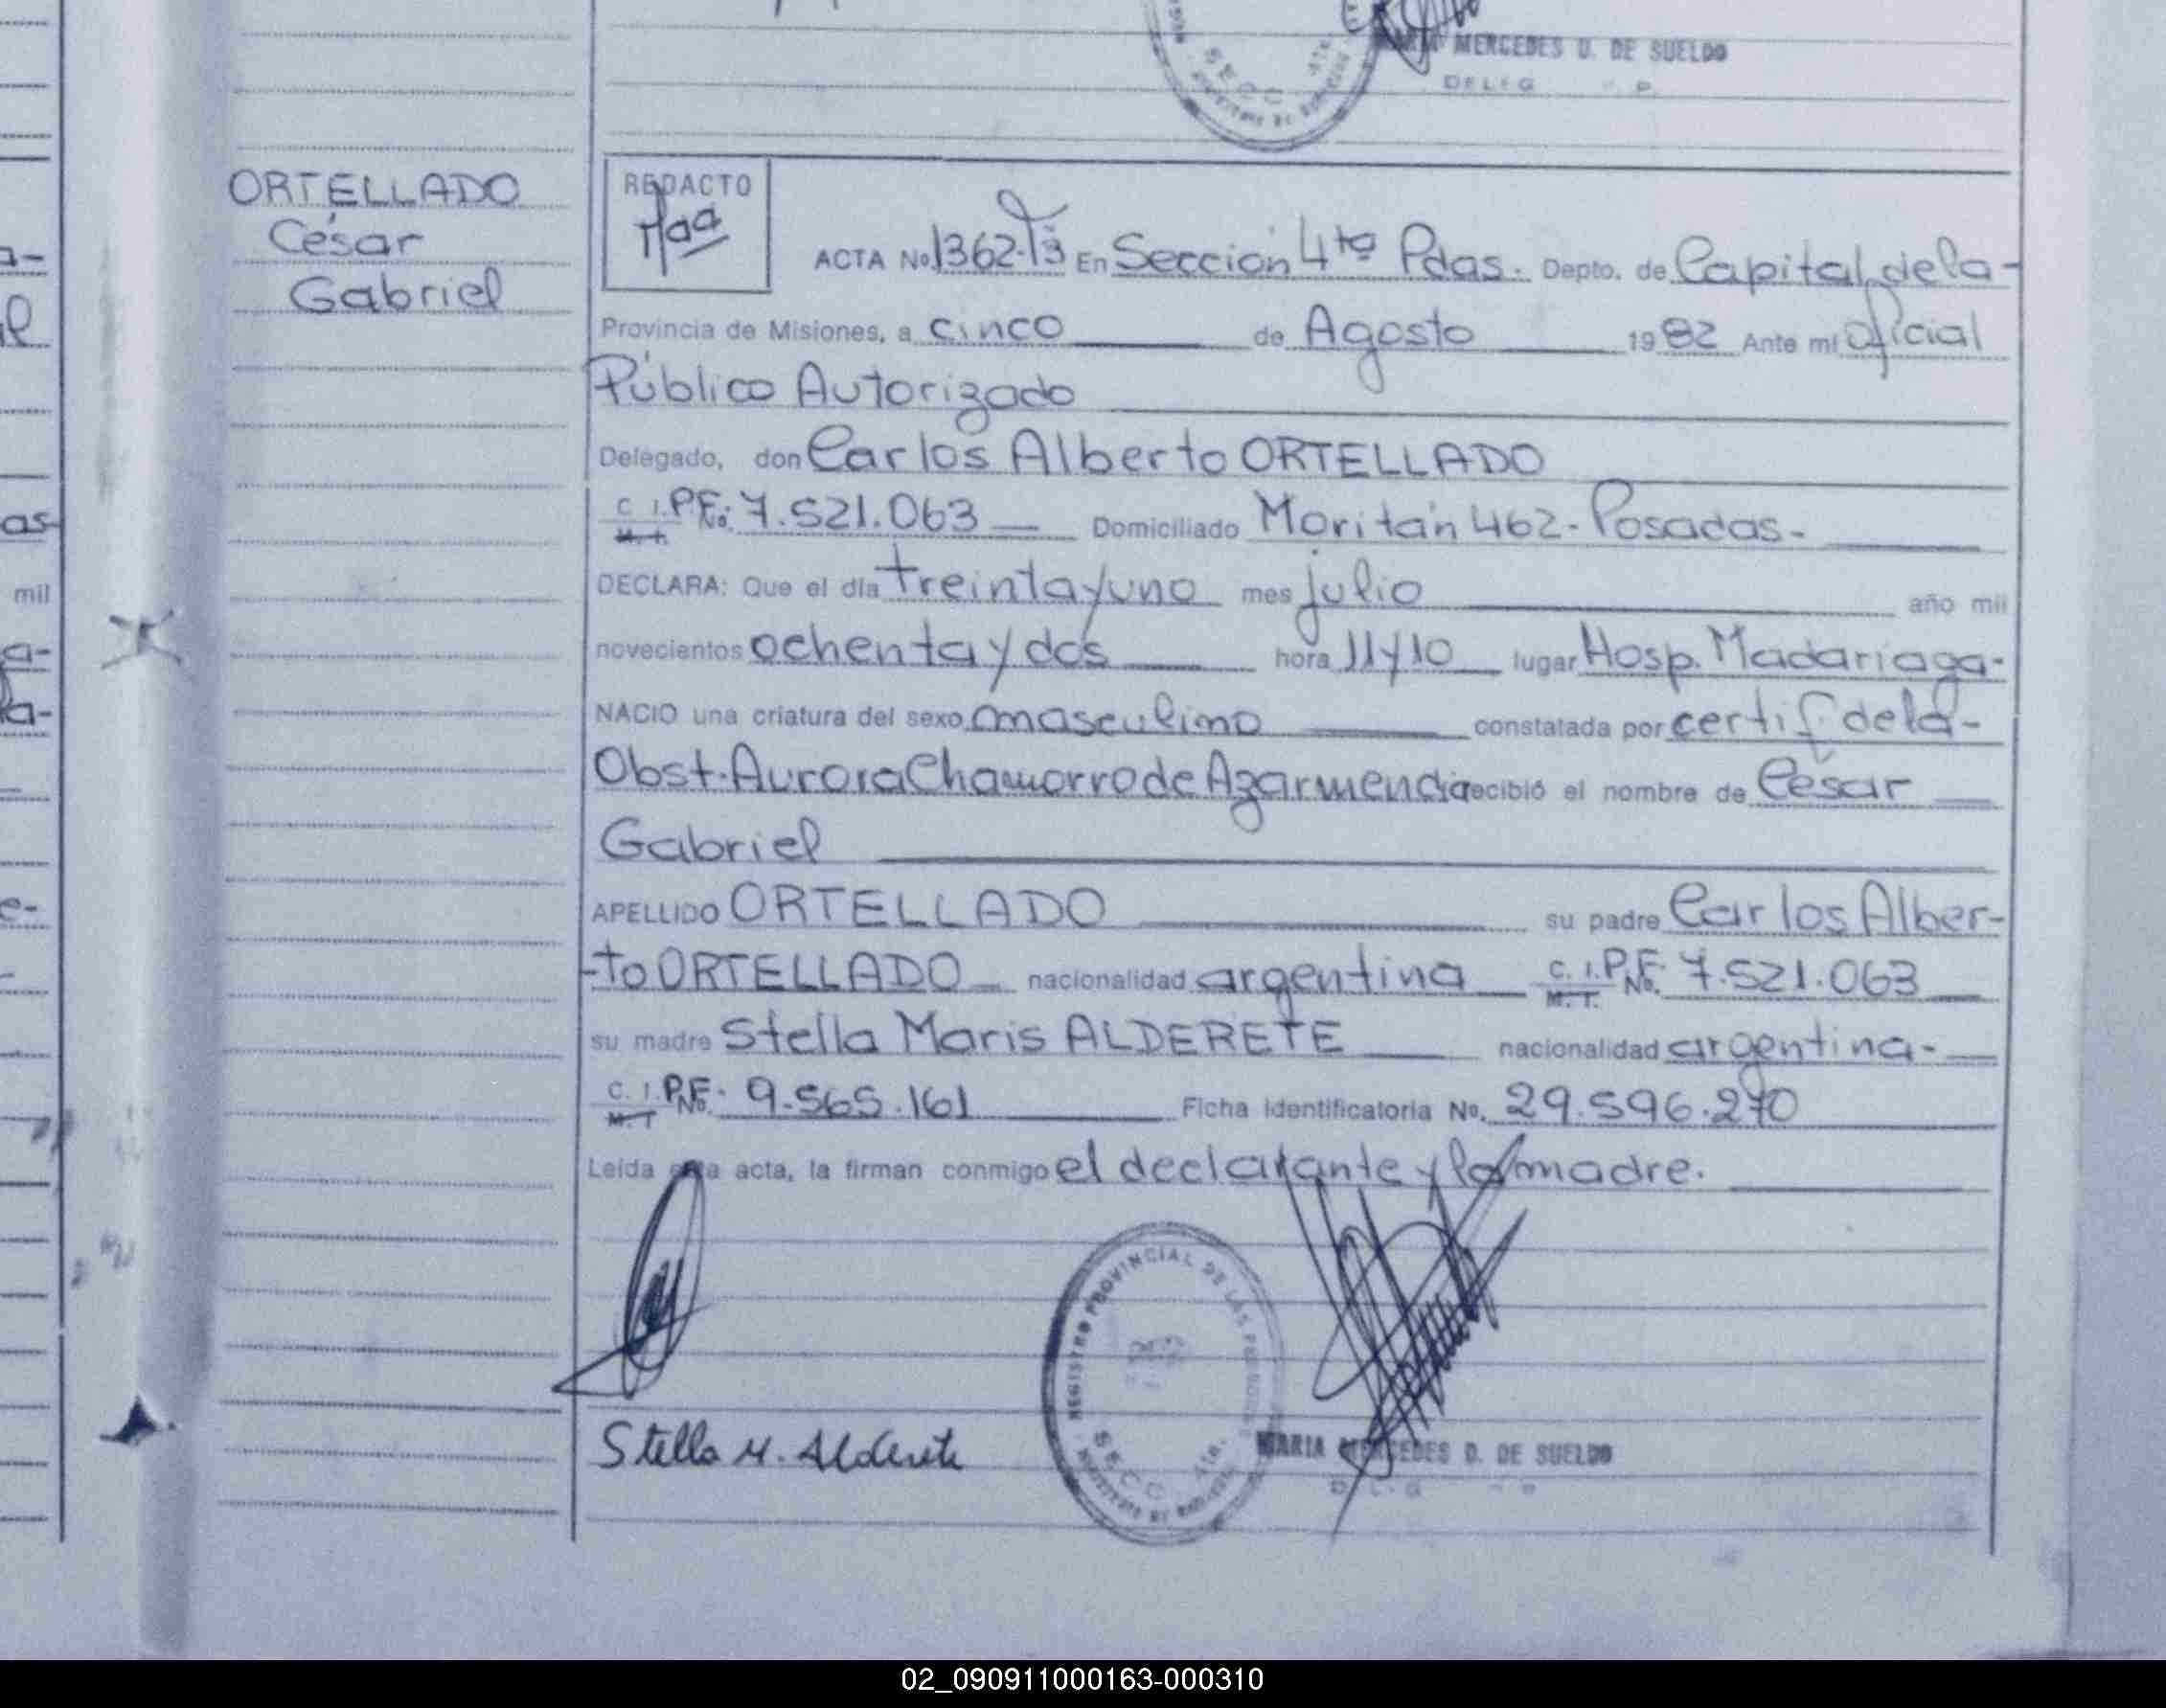 MERCEDES D. DE SUELDO
DELEG
ORTELLADO
César
Gabriel
REDACTO
ACTA No. 1362-T3 En Sección 4ta Pdas. Depto. de Capital de la-
Provincia de Misiones, a cinco de Agosto 1982 Ante mí Oficial
Público Autorizado
Delegado, don Carlos Alberto ORTELLADO
C. I. P.F. No. 7.521.063 Domiciliado Moritán 462- Posadas-
M. I.
DECLARA: Que el día treinta y uno mes julio año mil
novecientos ochenta y dos hora 11 y 10 lugar Hosp. Madariaga-
NACIO una criatura del sexo masculino constatada por certif de la-
Obst. Aurora Chamorro de Azarmendia recibió el nombre de César
Gabriel
APELLIDO ORTELLADO su padre Carlos Alber-
-to ORTELLADO nacionalidad argentina C. I. P.F. No. 7.521.063
M. T.
su madre Stella Maris ALDERETE nacionalidad argentina-
C. I. P.F. No. 9.565.161 Ficha identificatoria No. 29.596.270
M. T
Leída esta acta, la firman conmigo el declarante y la madre.
REGISTRO PROVINCIAL DE LAS PERSONAS
SECC 4ta.
Stella M. Alderete
MARIA MERCEDES D. DE SUELDO
as
mil
02_090911000163-000310